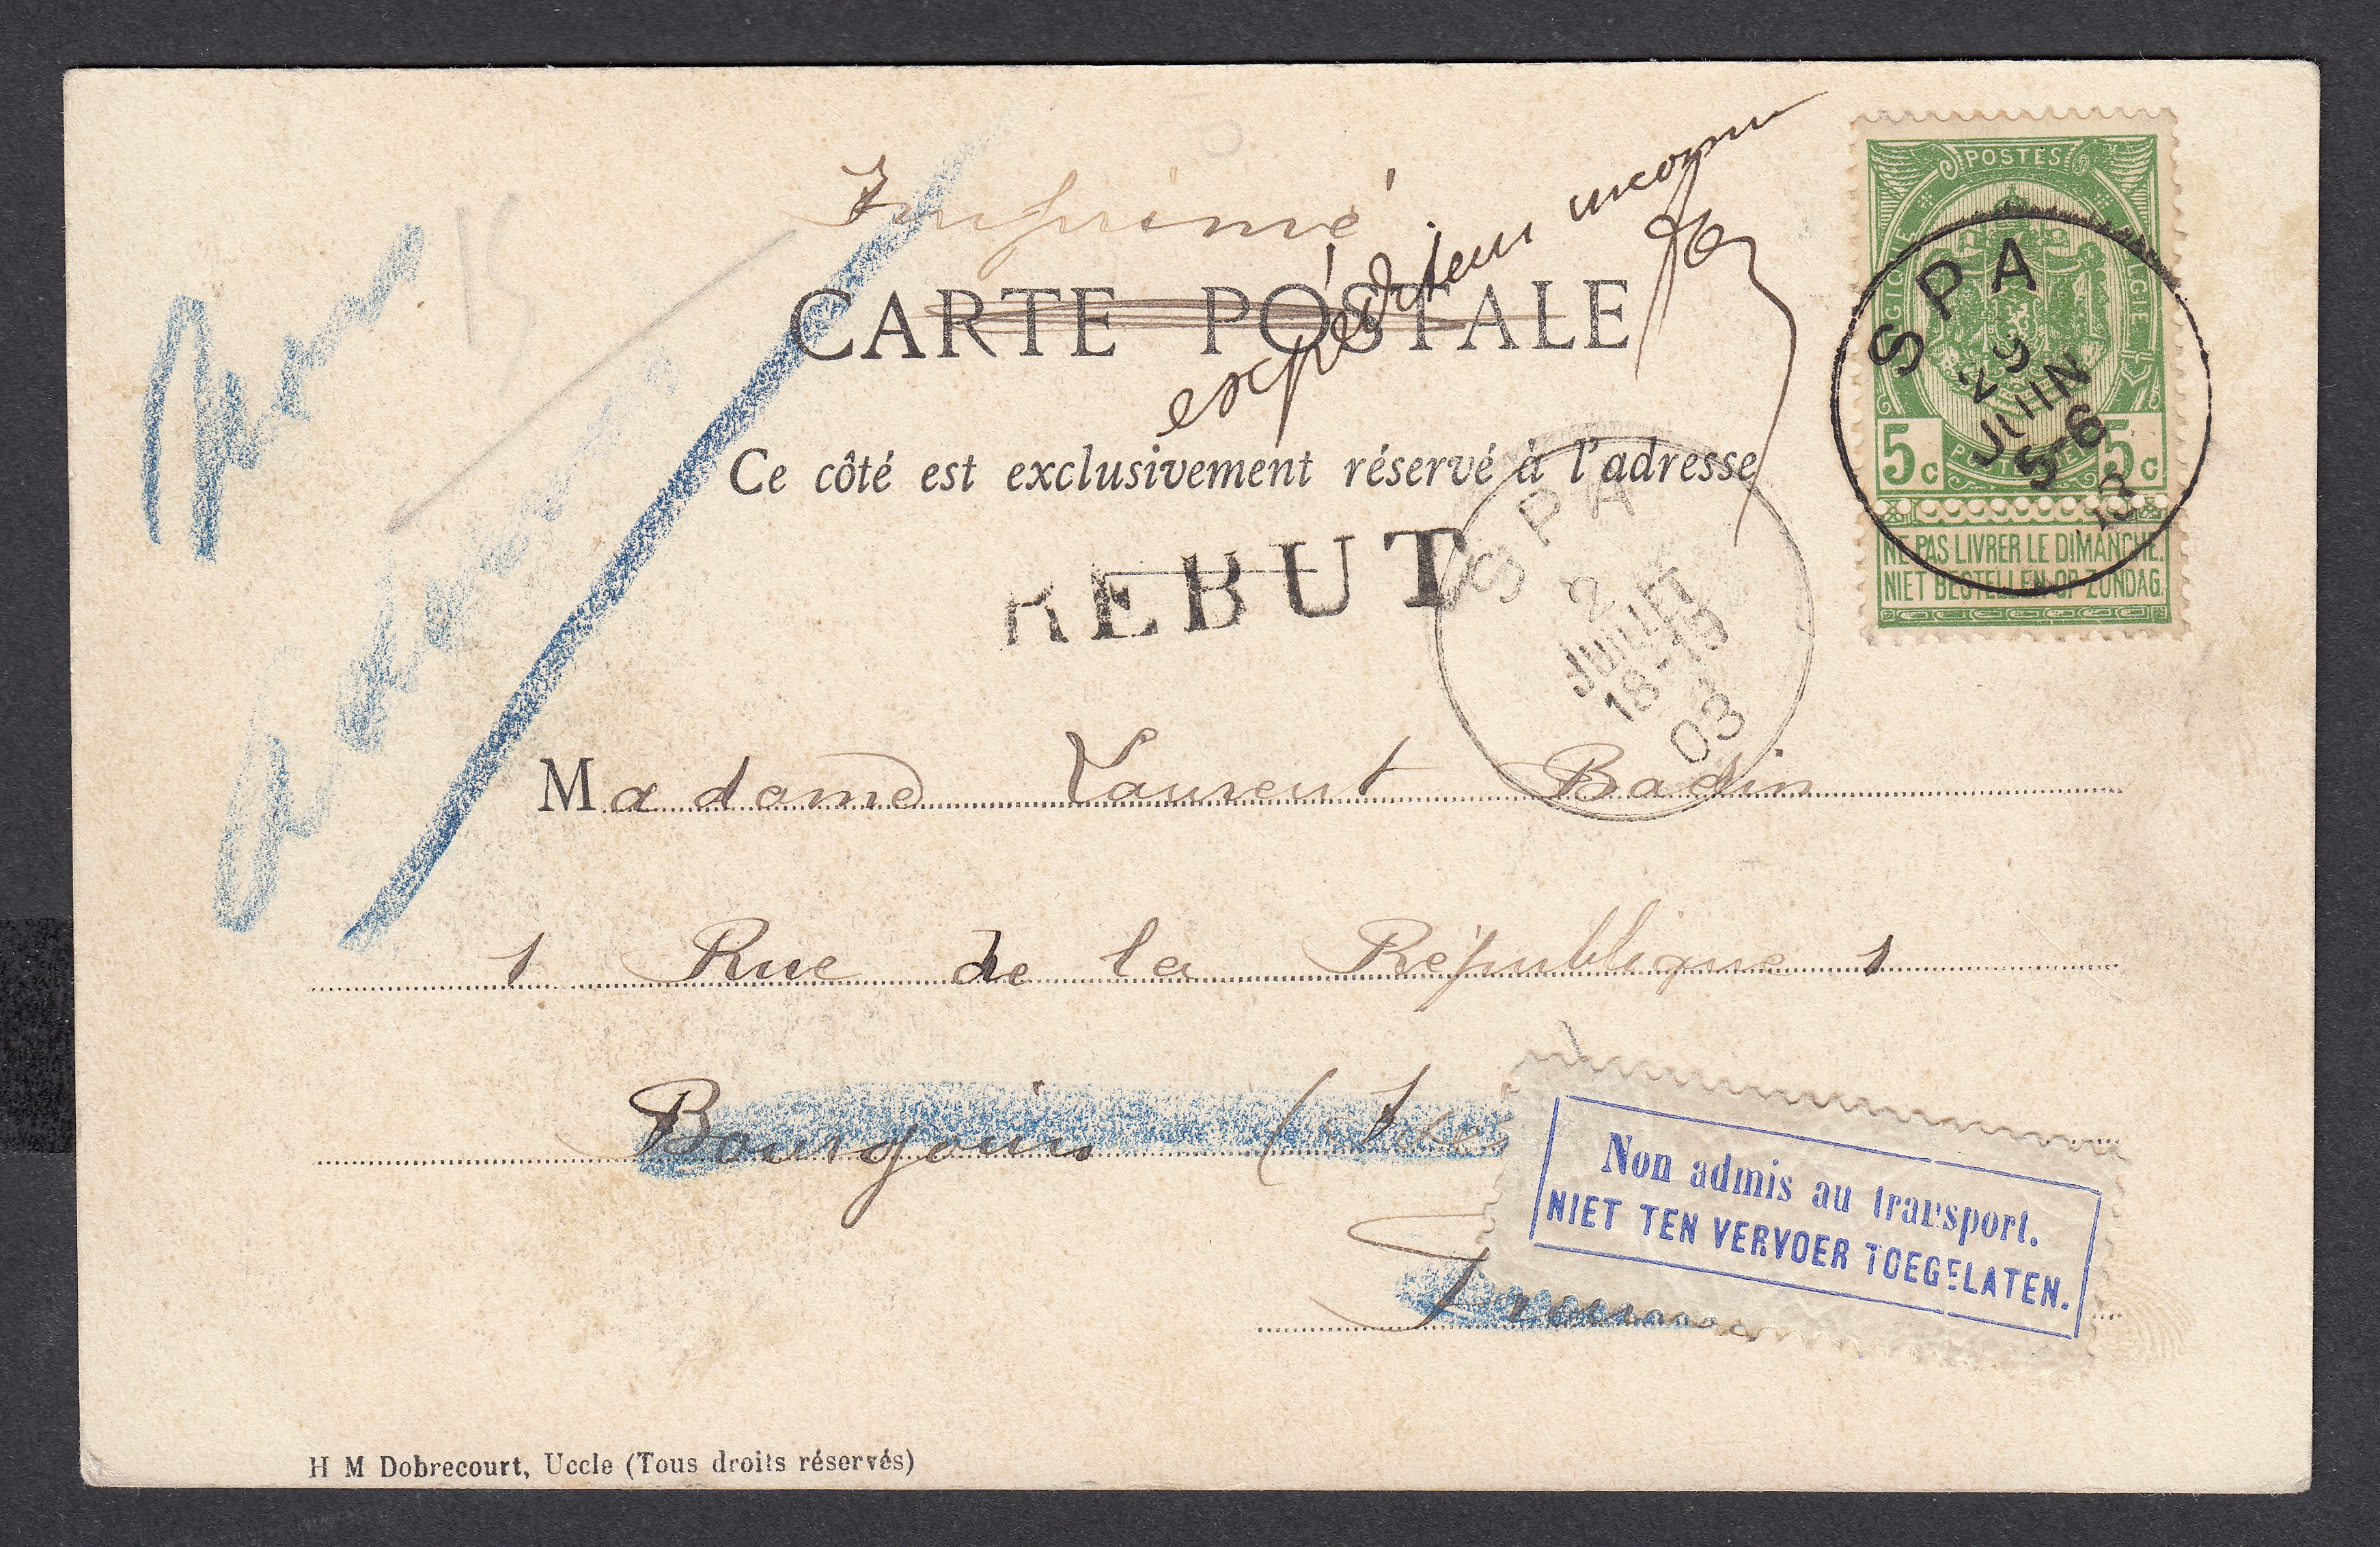 Imprimé
expéditeur inconnu
CARTE POSTALE
Ce côté est exclusivement réservé à l'adresse
POSTES
BELGIQUE
BELGIE
5c
5c
NE PAS LIVRER LE DIMANCHE.
NIET BESTELLEN OP ZONDAG.
SPA
29
JUIN
5-6
REBUT
SPA
2
JUILLET
18-19
03
non
admis
Madame Laurent Badin
1 Rue de la République 1
Bourgoin (Ise
Non admis au transport.
NIET TEN VERVOER TOEGELATEN.
H M Dobrecourt, Uccle (Tous droits réservés)